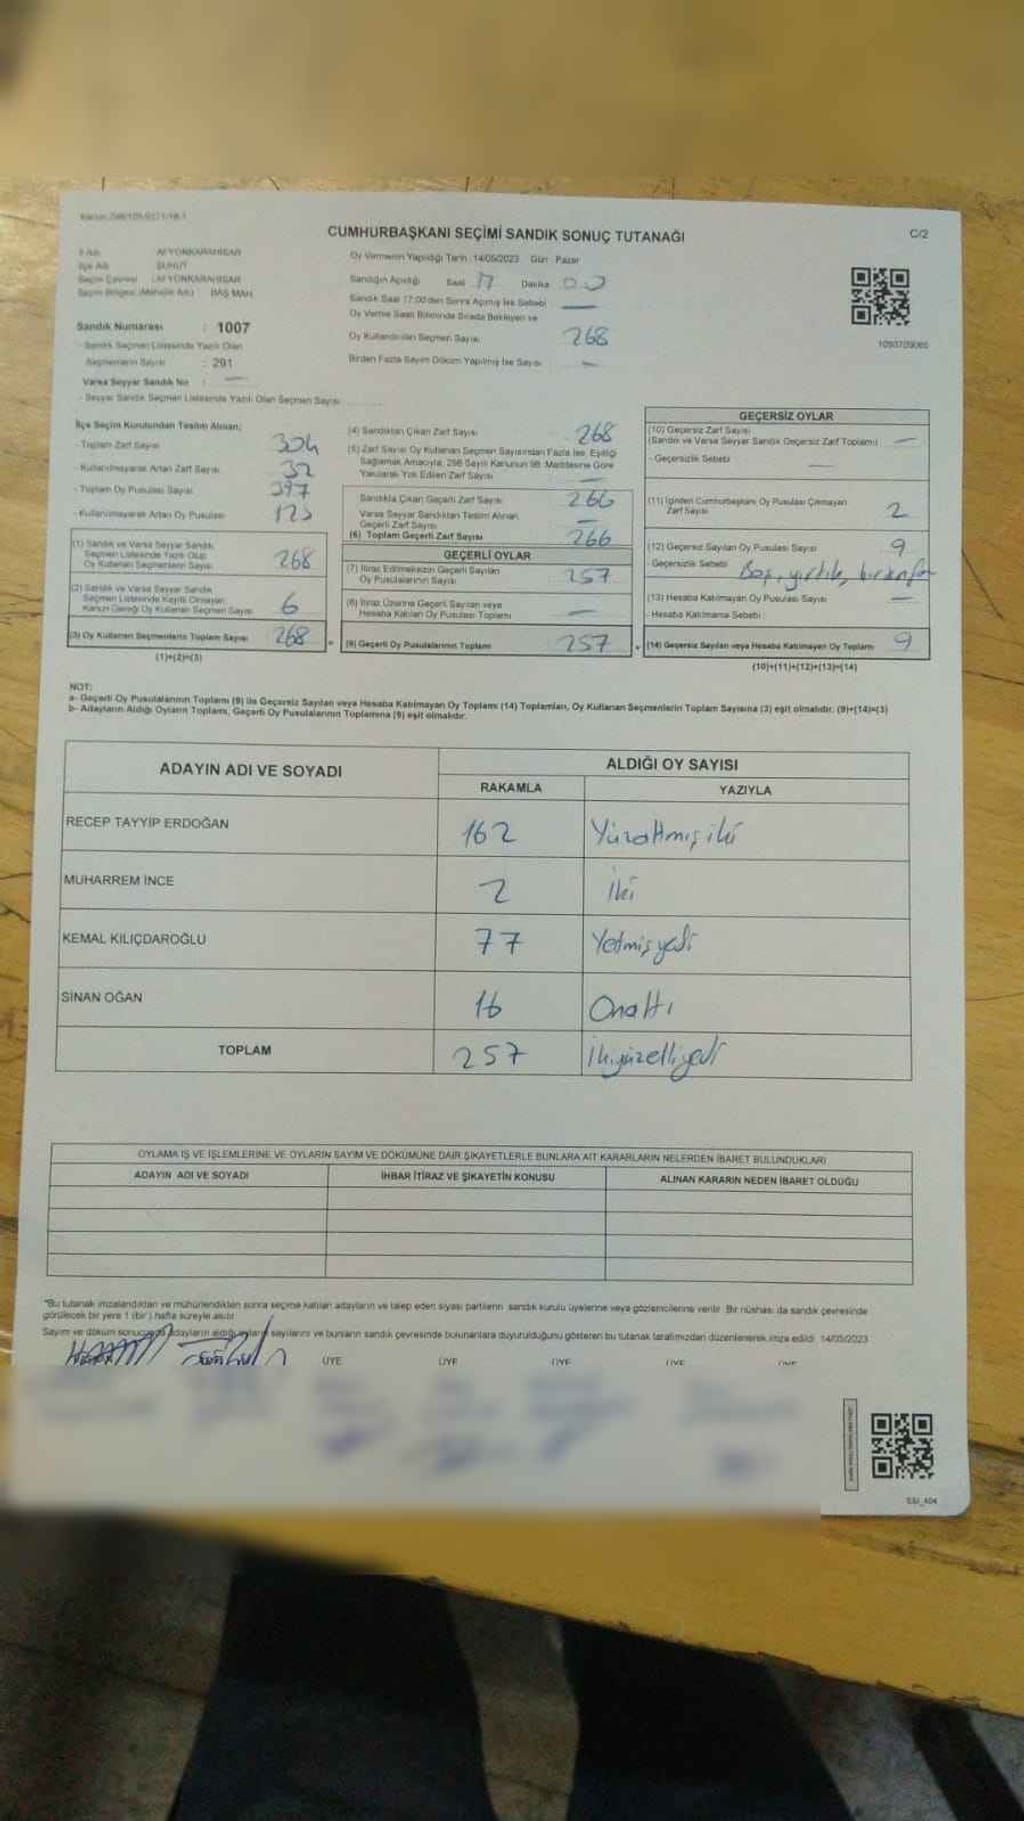 CUMHURBAŞKANI SEÇİMİ SANDIK SONUÇ TUTANAĞI
C/2
İl Adı : AFYONKARAHİSAR
İlçe Adı : ŞUHUT
Seçim Çevresi : AFYONKARAHİSAR
Seçim Bölgesi (Mahalle Adı) : BAŞ MAH
Sandık Numarası : 1007
- Sandık Seçmen Listesinde Yazılı Olan
Seçmenlerin Sayısı : 291
Varsa Seyyar Sandık No : —
- Seyyar Sandık Seçmen Listesinde Yazılı Olan Seçmen Sayısı
Oy Vermenin Yapıldığı Tarih : 14/05/2023 Gün : Pazar
Sandığın Açıldığı Saat 17 Dakika 00
Sandık Saat 17:00'den Sonra Açılmış İse Sebebi —
Oy Verme Saati Bitiminde Sırada Bekleyen ve
Oy Kullandırılan Seçmen Sayısı 268
Birden Fazla Sayım Döküm Yapılmış İse Sayısı —
1090709065
İlçe Seçim Kurulundan Teslim Alınan;
- Toplam Zarf Sayısı 304
- Kullanılmayarak Artan Zarf Sayısı 32
- Toplam Oy Pusulası Sayısı 397
- Kullanılmayarak Artan Oy Pusulası
(1) Sandık ve Varsa Seyyar Sandık
Seçmen Listesinde Yazılı Olup
Oy Kullanan Seçmenlerin Sayısı 268
(2) Sandık ve Varsa Seyyar Sandık
Seçmen Listesinde Kayıtlı Olmayan
Kanun Gereği Oy Kullanan Seçmen Sayısı 6
(3) Oy Kullanan Seçmenlerin Toplam Sayısı 268
(1)+(2)=(3)
(4) Sandıktan Çıkan Zarf Sayısı 268
(5) Zarf Sayısı Oy Kullanan Seçmen Sayısından Fazla İse, Eşitliği
Sağlamak Amacıyla, 298 Sayılı Kanunun 98. Maddesine Göre
Yakılarak Yok Edilen Zarf Sayısı —
Sandıkta Çıkan Geçerli Zarf Sayısı 266
Varsa Seyyar Sandıktan Teslim Alınan
Geçerli Zarf Sayısı —
(6) Toplam Geçerli Zarf Sayısı 266
GEÇERLİ OYLAR
(7) İtiraz Edilmeksizin Geçerli Sayılan
Oy Pusulalarının Sayısı 257
(8) İtiraz Üzerine Geçerli Sayılan veya
Hesaba Katılan Oy Pusulası Toplamı —
(9) Geçerli Oy Pusulalarının Toplamı 257
GEÇERSİZ OYLAR
(10) Geçersiz Zarf Sayısı
(Sandık ve Varsa Seyyar Sandık Geçersiz Zarf Toplamı) —
- Geçersizlik Sebebi —
(11) İçinden Cumhurbaşkanı Oy Pusulası Çıkmayan
Zarf Sayısı 2
(12) Geçersiz Sayılan Oy Pusulası Sayısı 9
- Geçersizlik Sebebi Boş, yırtık,
(13) Hesaba Katılmayan Oy Pusulası Sayısı —
- Hesaba Katılmama Sebebi :
(14) Geçersiz Sayılan veya Hesaba Katılmayan Oy Toplamı 9
(10)+(11)+(12)+(13)=(14)
NOT:
a- Geçerli Oy Pusulalarının Toplamı (9) ile Geçersiz Sayılan veya Hesaba Katılmayan Oy Toplamı (14) Toplamları, Oy Kullanan Seçmenlerin Toplam Sayısına (3) eşit olmalıdır. (9)+(14)=(3)
b- Adayların Aldığı Oyların Toplamı, Geçerli Oy Pusulalarının Toplamına (9) eşit olmalıdır.
ADAYIN ADI VE SOYADI ALDIĞI OY SAYISI
RAKAMLA YAZIYLA
RECEP TAYYİP ERDOĞAN 162 Yüzaltmışiki
MUHARREM İNCE 2 İki
KEMAL KILIÇDAROĞLU 77 Yetmişyedi
SİNAN OĞAN 16 Onaltı
TOPLAM 257 İkiyüzelliyedi
OYLAMA İŞ VE İŞLEMLERİNE VE OYLARIN SAYIM VE DÖKÜMÜNE DAİR ŞİKAYETLERLE BUNLARA AİT KARARLARIN NELERDEN İBARET BULUNDUKLARI
ADAYIN ADI VE SOYADI İHBAR İTİRAZ VE ŞİKAYETİN KONUSU ALINAN KARARIN NEDEN İBARET OLDUĞU
*Bu tutanak imzalandıktan ve mühürlendikten sonra seçime katılan adayların ve talep eden siyasi partilerin sandık kurulu üyelerine veya gözlemcilerine verilir. Bir nüshası da sandık çevresinde
görülecek bir yere 1 (bir) hafta süreyle asılır.
Sayım ve döküm sonucunda adayların aldığı oyların sayılarını ve bunların sandık çevresinde bulunanlara duyurulduğunu gösteren bu tutanak tarafımızdan düzenlenerek imza edildi. 14/05/2023
ÜYE ÜYE ÜYE ÜYE ÜYE